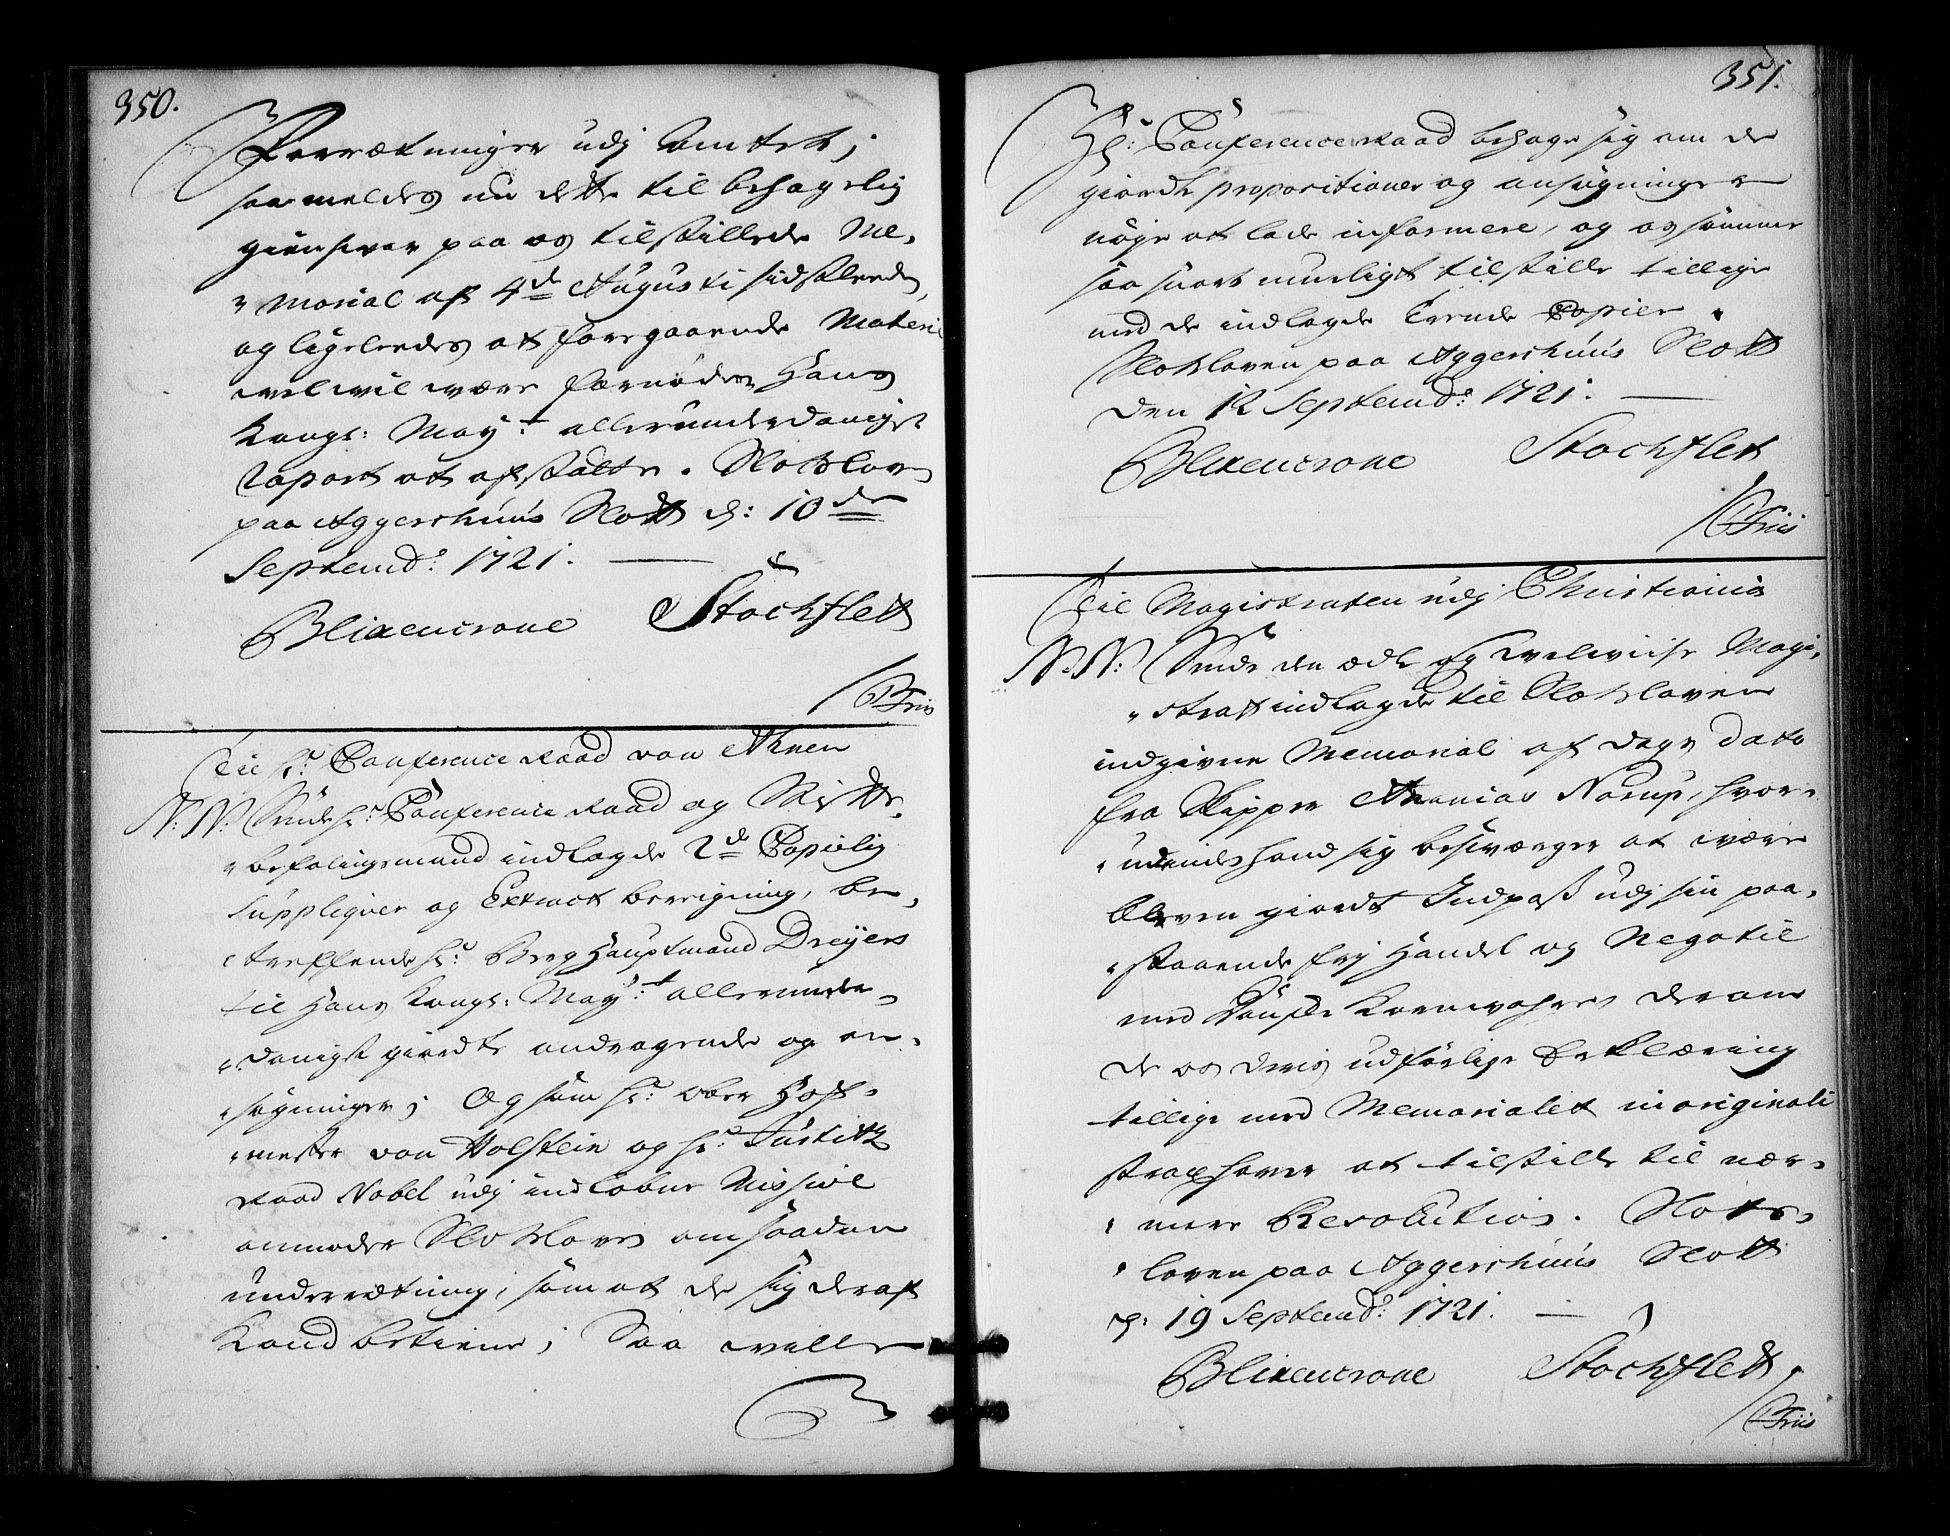 350.
Forrætninger udj Amtet;
saa meldes nu dette til behagelig
giensvar paa os tilstillede Me-
morial af 4de Augusti sidstleden,
og ligeledes at foregaaende Materie
vel vil være fornøden Hans
Kongl: May:t allerunderdanigst
Raport at afstatte. Slotsloven
paa Aggershuus Slott d: 10de
Septembr: 1721.
Blixencrone Stochflett
Friis
Til hr. Conference Raad von Ahnen
N: N: Sende hr: Conference Raad og Stifts-
befalingsmand indlagde 2de Copielig
Suppliqver og Extract beregning, be-
treffende hr: Berg Hauptmand Dreyers
til Hans Kongl: May:t allerunder-
danigst giordte andragende og an-
søgninger; Og som hr: ober Hoff-
mester von Holstein og hr: Justitz
Raad Nobel udj indløbne Missive
anmoder Slotsloven om saadan
underrætning, som at de sig deraf
Kand betiene; Saa ville
351.
Hr: Conference Raad behage sig om de
giordte propositioner og ansøgninger
nøye at lade informere, og os samme
saa snart mueligt tilstille tillige
med de indlagde Copier.
Slotsloven paa Aggershuus Slott
Den 12 Septembr: 1721.
Blixencrone Stochflett
Friis
Til Magistraten udj Christiania
N: N: Sende den ædle og velviise Magi-
strat indlagde til Slotsloven
indgivne Memorial af dags dato
fra Skipper Ananias Norup, hvor-
udinde hand sig besværger at være
bleven giordt Indpass udj sin paa-
staaende frj Handel og Negotie
med Kornvahre, derom
de os deris udførlige Erklæring
tillige med Memorialet in originali
strax haver at tilstille til nær-
mere Resolution. Slots-
loven paa Aggershuus Slott
d: 19 Septembr: 1721.
Blixencrone Stochflett
Friis